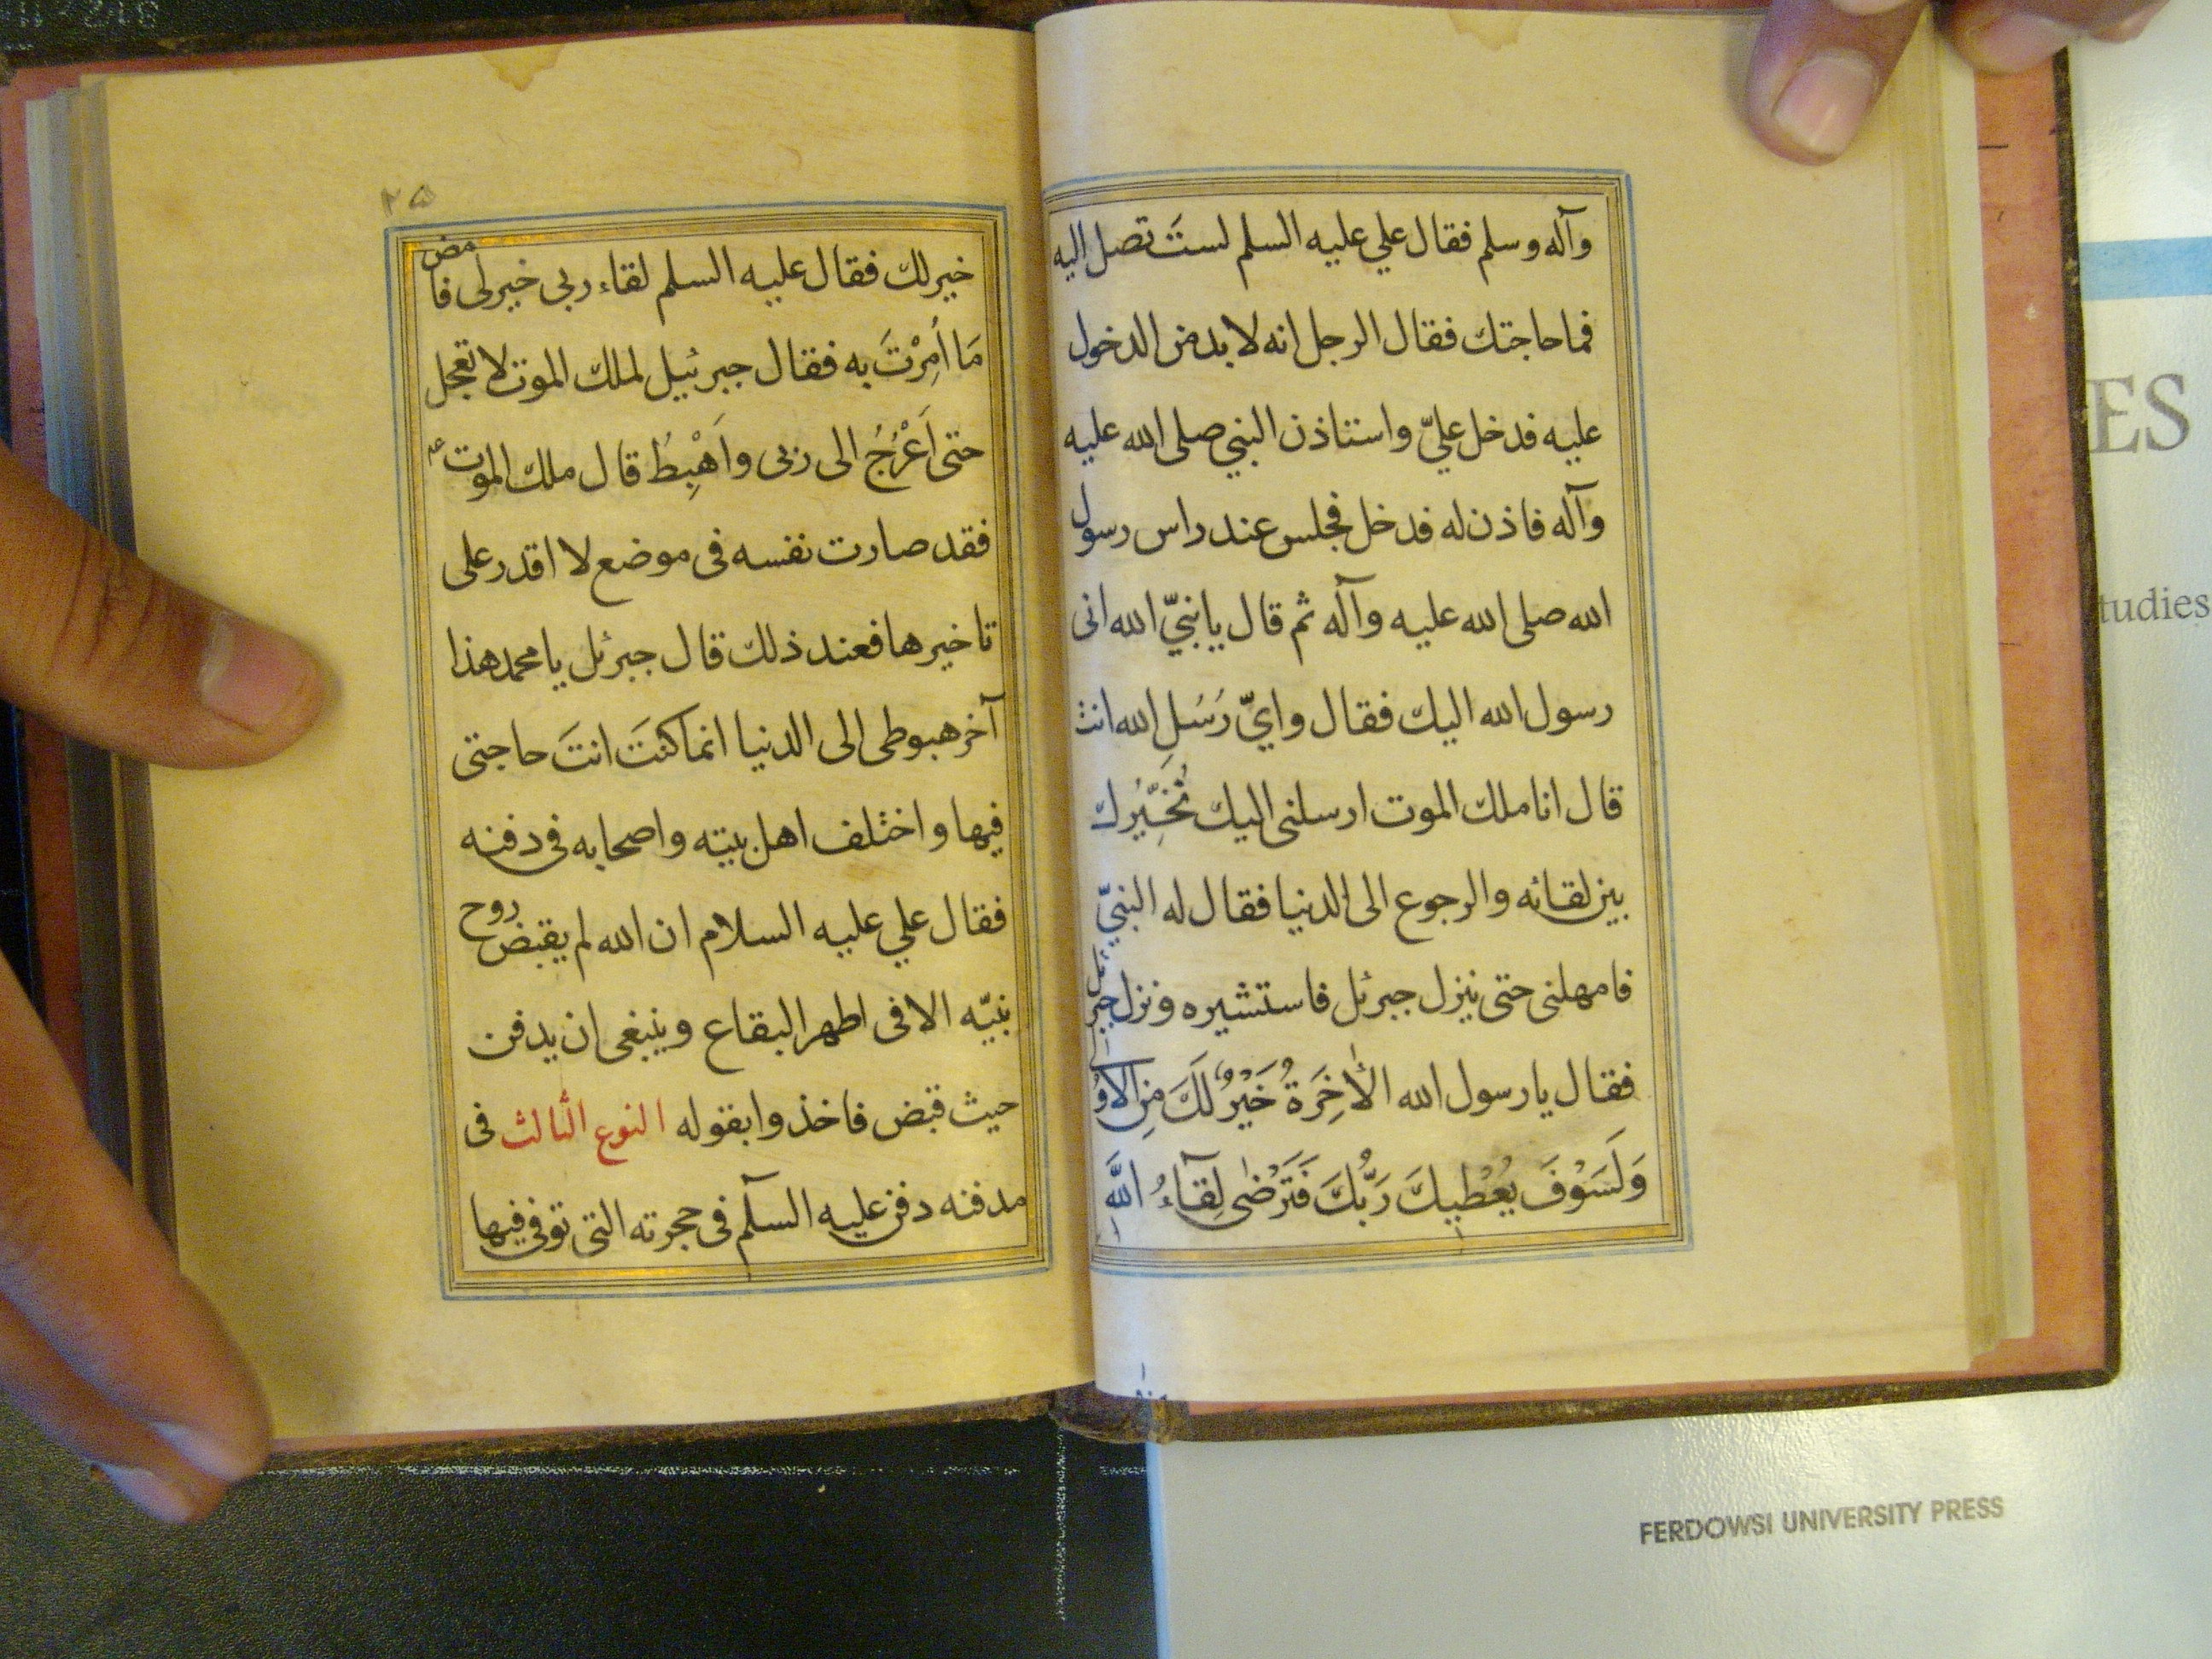 وآله وسلم فقال علي عليه السلم لستَ تصل اليه
فما حاجتك فقال الرجل انه لا بد من الدخول
عليه فدخل عليّ واستاذن النبي صلى الله عليه
وآله فاذن له فدخل فجلس عند راس رسول
الله صلى الله عليه وآله ثم قال يا نبيّ الله انى
رسول الله اليك فقال وايّ رُسُلِ الله انت
قال انا ملك الموت ارسلنى اليك نُخَيِّرُك
بين لقائه والرجوع الى الدنيا فقال له النبيّ
فامهلنى حتى ينزل جبرئل فاستشيره ونزل جبرئل
فقال يا رسول الله الْاٰخِرَةُ خَيْرٌ لَكَ مِنَ الاُولى
وَلَسَوْفَ يُعْطيكَ رَبُّكَ فَتَرْضٰى لِقآءُ اللَّهِ
٢٥
خير لك فقال عليه السلم لقاء ربى خير لى فامض
مَا اُمِرْتَ به فقال جبرئيل لملك الموت لا تعجل
حتى اَعْرُجُ الى ربى واَهْبِطُ قال ملك الموت ع
فقد صارت نفسه فى موضع لا اقدر على
تاخيرها فعند ذلك قال جبرئل يا محمد هذا
آخر هبوطى الى الدنيا انما كنتَ انتَ حاجتى
فيها واختلف اهل بيته واصحابه فى دفنه
فقال علي عليه السلام ان الله لم يقبض روح
نبيّه الا فى اطهر البقاع وينبغى ان يدفن
حيث قبض فاخذوا بقوله النوع الثالث فى
مدفنه دفن عليه السلٓم فى حجرته التى توفى فيها
ES
tudies
FERDOWSI UNIVERSITY PRESS